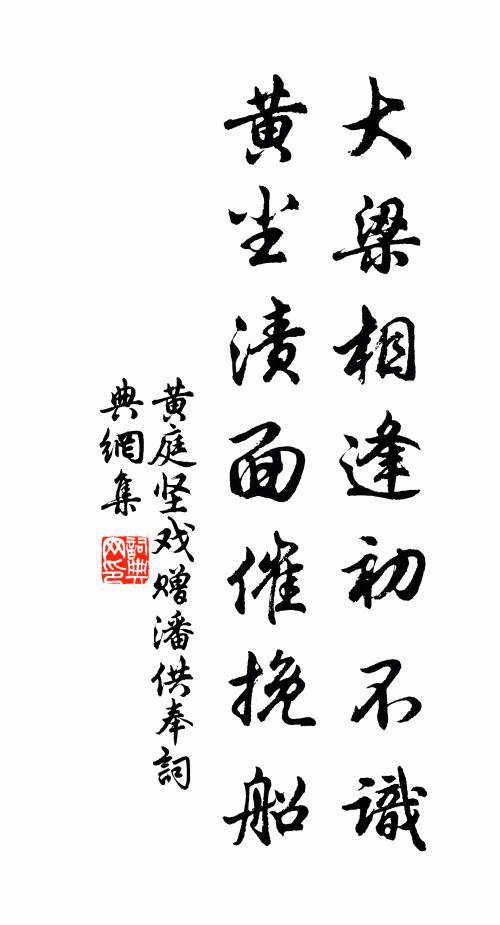 大梁相逢初不識
黄尘渍面催挽船
黄庭坚戏赠潘供奉詞
典網集
詞典
网印